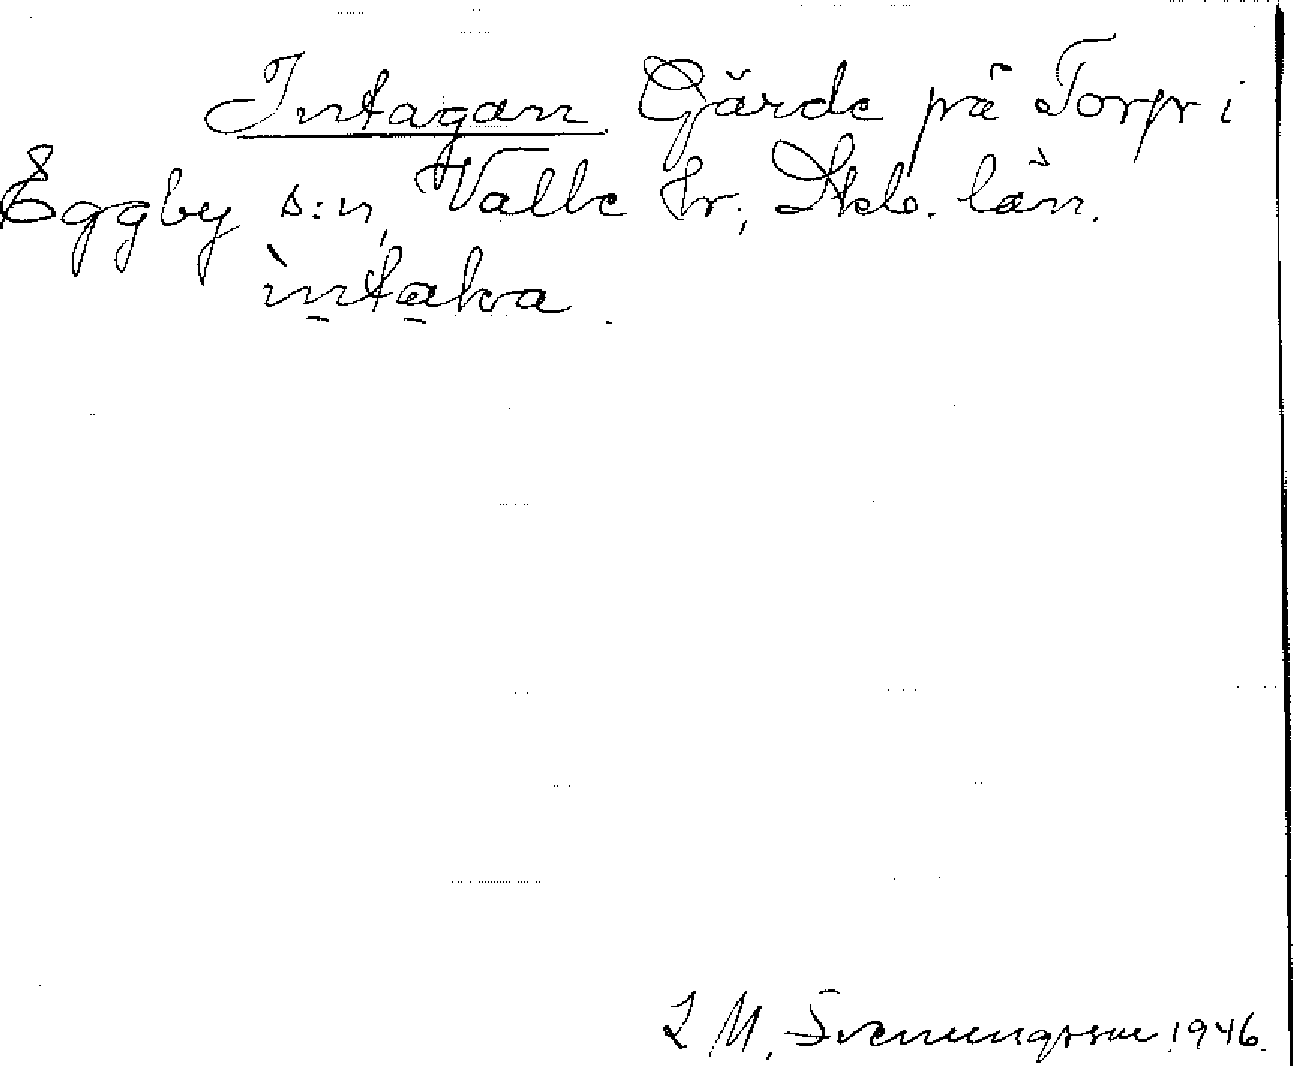 Intagan Gärde på Torp i
Eggby s:n, Valle hr, Skb. län.
ìntaka
L M. Svenungsson 1946.